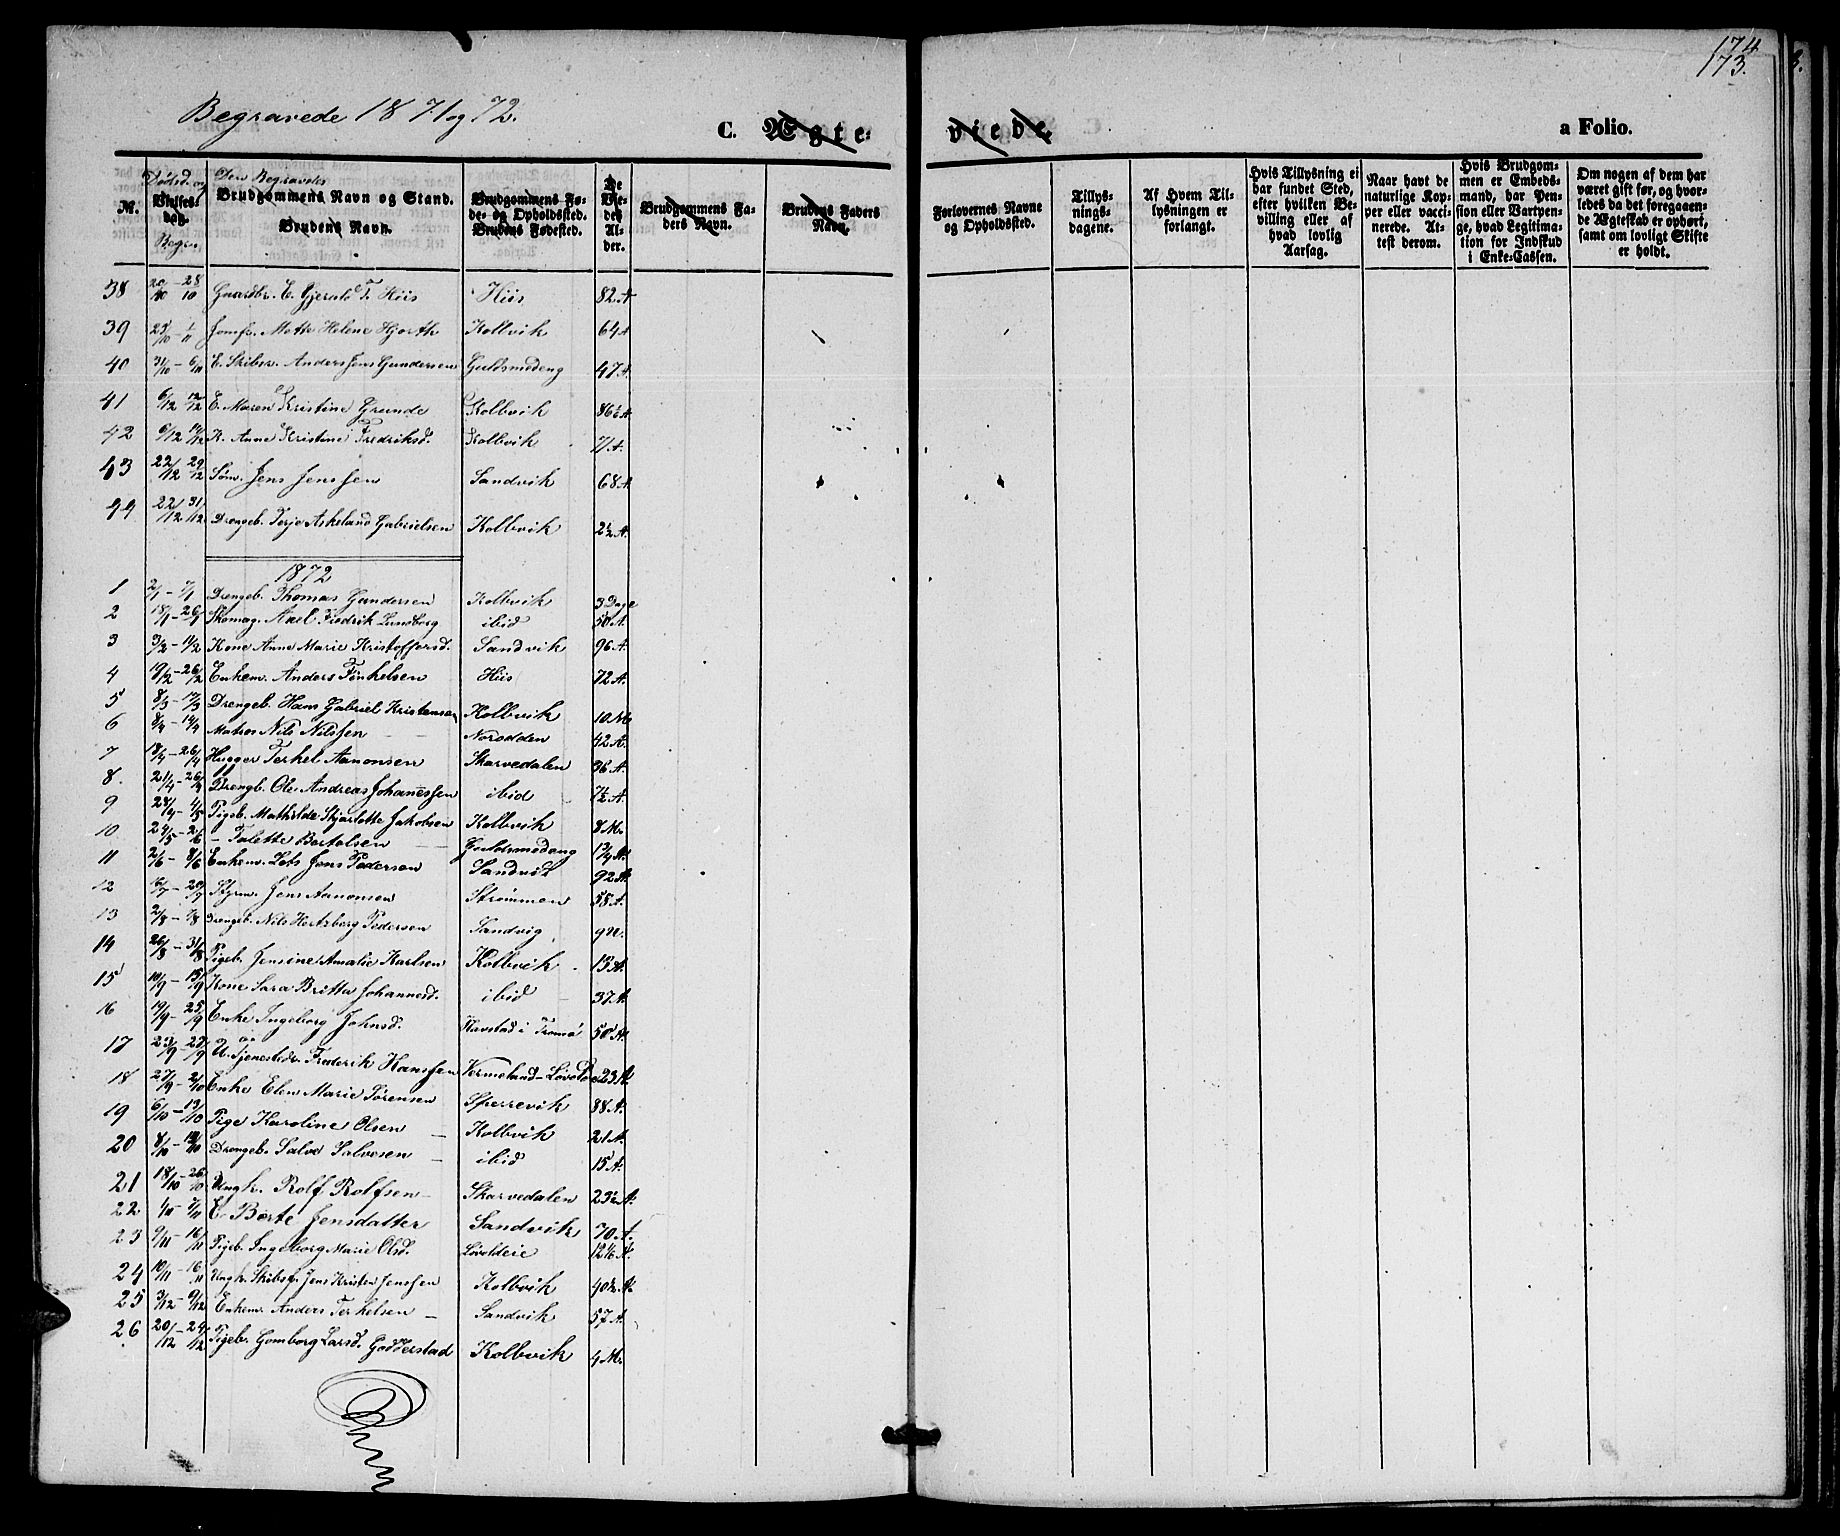 174
173.
Begravede 1871 og 72.
C. Ægte-
viede.
a Folio.
№.
Dødsd. og
Vielses-
dag.
Begr.
Den Begravedes
Brudgommens Navn og Stand.
Brudens Navn.
Brudgommens Fø-
de- og Opholdssted.
Brudens Fødested.
De
Vie-
des
Al-
der.
Brudgommens Fa-
ders Navn.
Brudens Faders
Navn.
Forlovernes Navne
og Opholdssted.
Tillys-
nings-
dagene.
Af Hvem Til-
lysningen er
forlangt.
Hvis Tillysning ei
har fundet Sted,
efter hvilken Be-
villing eller af
hvad lovlig
Aarsag.
Naar havt de
naturlige Kop-
per eller vacci-
nerede. At-
test derom.
Hvis Brudgom-
men er Embeds-
mand, har Pen-
sion eller Vartpen-
ge, hvad Legitima-
tion for Indskud
i Enke-Cassen.
Om nogen af dem har
været gift før, og hvor-
ledes da det foregaaen-
de Ægteskab er ophørt,
samt om lovligt Skifte
er holdt.
38 20/10 – 28/10 Gaardbr. E. Gjerulf T. Hiis Hiis 82 A
39 25/10 – 1/11 Jomfr. Mette Helene Hjorth Kolbvik 64 A
40 31/10 – 6/11 E. Skibsr. Anders Jens Gundersen Guldsmedeng 47 A.
41 6/12 12/12 E. Maren Kristine Grunde Kolbvik 86½ A
42 6/12 14/12 K. Anne Kristine Fredriksd. Kolbvik 71 A.
43 22/12 29/12 Søm. Jens Jenssen Sandvik 68 A
44 22/12 31/12 Drengeb. Terje Askeland Gabrielsen Kolbvik 2½ A.
1872
1 2/1 – 7/1 Drengeb. Thomas Gundersen Kolbvik 3 Dage
2 18/1 – 26/1 Skomag. Axel Fredrik Lundborg ibid 50 A.
3 3/2 – 11/2 Kone Anne Marie Kristoffersd. Sandvik 96 A.
4 19/2 – 26/2 Enkem. Anders Tønhelsen Hiis 72 A.
5 8/3 – 17/3 Drengeb. Hans Gabriel Kristensen Kolbvik 10 M
6 8/4 – 14/4 Matros Nils Nilssen Norodden 42 A.
7 18/4 – 26/4 Hugger Terkel Aanonsen Skarvedalen 36 A.
8. 21/4 – 26/4 Drengb. Ole Andreas Johanessen ibid 7½ A.
9 28/4 – 4/5 Pigeb. Mathilde Skjarlotte Jakobsen Kolbvik 8 M.
10 24/5 – 2/6 – Talette Bertelsen Guldsmedeng 1¾ A.
11 2/6 – 8/6 Enkem. Lots Jens Pedersen Sandvik 92 A.
12 16/7 – 20/7 Styrm. Jens Aanonsen Strømmen 55 A.
13 2/8 – 7/8 Drengeb. Nils Hertzberg Pedersen Sandvig
14 26/8 – 31/8 Pigeb. Jensine Amalie Karlsen Kolbvik 13 A.
15 10/9 – 15/9 Kone Sara Britta Johannesd. ibid 37 A.
16 19/9 – 25/9 Enke Ingeborg Johnsd. Havstad i Tromø 50 A.
17 23/9 – 27/9 U. Tjenestedr. Frederik Hanssen Vermeland – Løvold 23 A.
18 27/9 – 2/10 Enke Elen Marie Sørensen Sperrevik 88 A.
19 6/10 – 13/10 Pige Karoline Olsen Kolbvik 21 A.
20 8/10 – Drengeb. Salve Salvesen ibid 15 A.
21 18/10 – 26/10 Ungk. Rolf Rolfsen Skarvedalen 23½ A.
22 1/11 – 7/11 E. Børte Jensdatter Sandvik 70 A.
23 9/11 – 16/11 Pigeb. Ingeborg Marie Olsd. Løvoldeie 12 1/6 A.
24 10/11 – 16/11 Ungk. Skibsf. Jens Kristen Jenssen Kolbvik 40½ A.
25 3/12 – 9/12 Enkem. Anders Terkelsen Sandvik 57 A.
26 20/12 – 24/12 Pigeb. Gomborg Larsd. Godderstad Kolbvik 4 M.